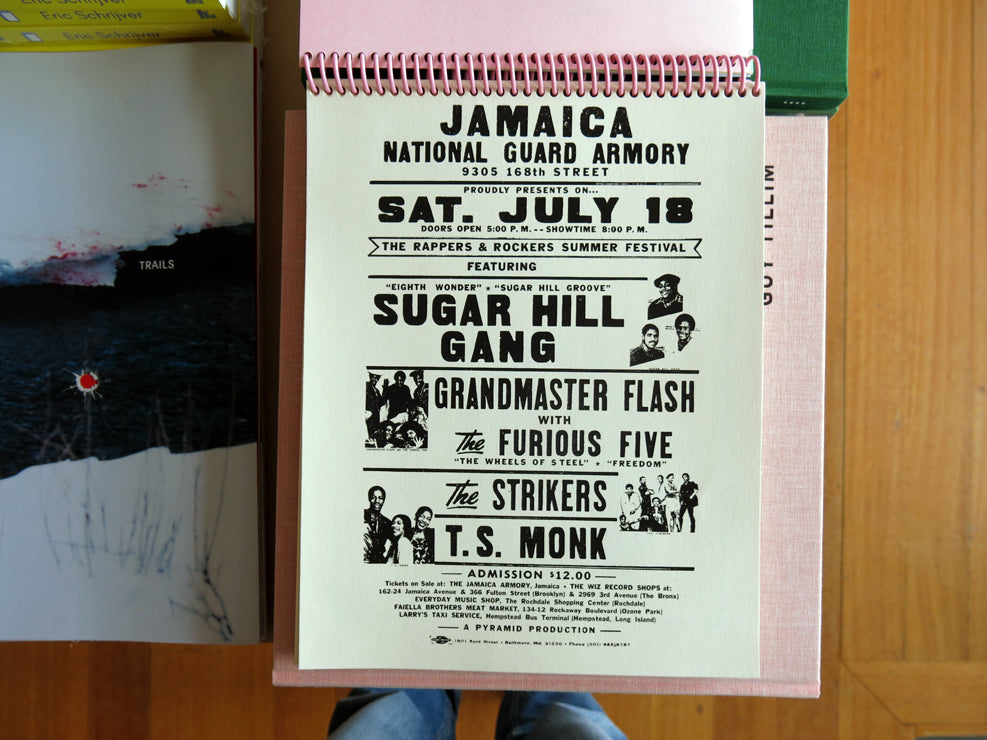 Eric Schrijver
Eric Schrijver
Eric Schrijver
TRAILS
GUY TILLIM
JAMAICA
NATIONAL GUARD ARMORY
9305 168th STREET
PROUDLY PRESENTS ON...
SAT. JULY 18
DOORS OPEN 5:00 P.M. -- SHOWTIME 8:00 P.M.
THE RAPPERS & ROCKERS SUMMER FESTIVAL
FEATURING
"EIGHTH WONDER" ★ "SUGAR HILL GROOVE"
SUGAR HILL
GANG
GRANDMASTER FLASH
WITH
The FURIOUS FIVE
"THE WHEELS OF STEEL" ★ "FREEDOM"
The STRIKERS
T.S. MONK
ADMISSION $12.00
Tickets on Sale at: THE JAMAICA ARMORY, Jamaica • THE WIZ RECORD SHOPS at:
162-24 Jamaica Avenue & 366 Fulton Street (Brooklyn) & 2969 3rd Avenue (The Bronx)
EVERYDAY MUSIC SHOP, The Rochdale Shopping Center (Rochdale)
FAIELLA BROTHERS MEAT MARKET, 134-12 Rockaway Boulevard (Ozone Park)
LARRY'S TAXI SERVICE, Hempstead Bus Terminal (Hempstead, Long Island)
A PYRAMID PRODUCTION
Street • Baltimore, Md. 21230 • Phone (301)